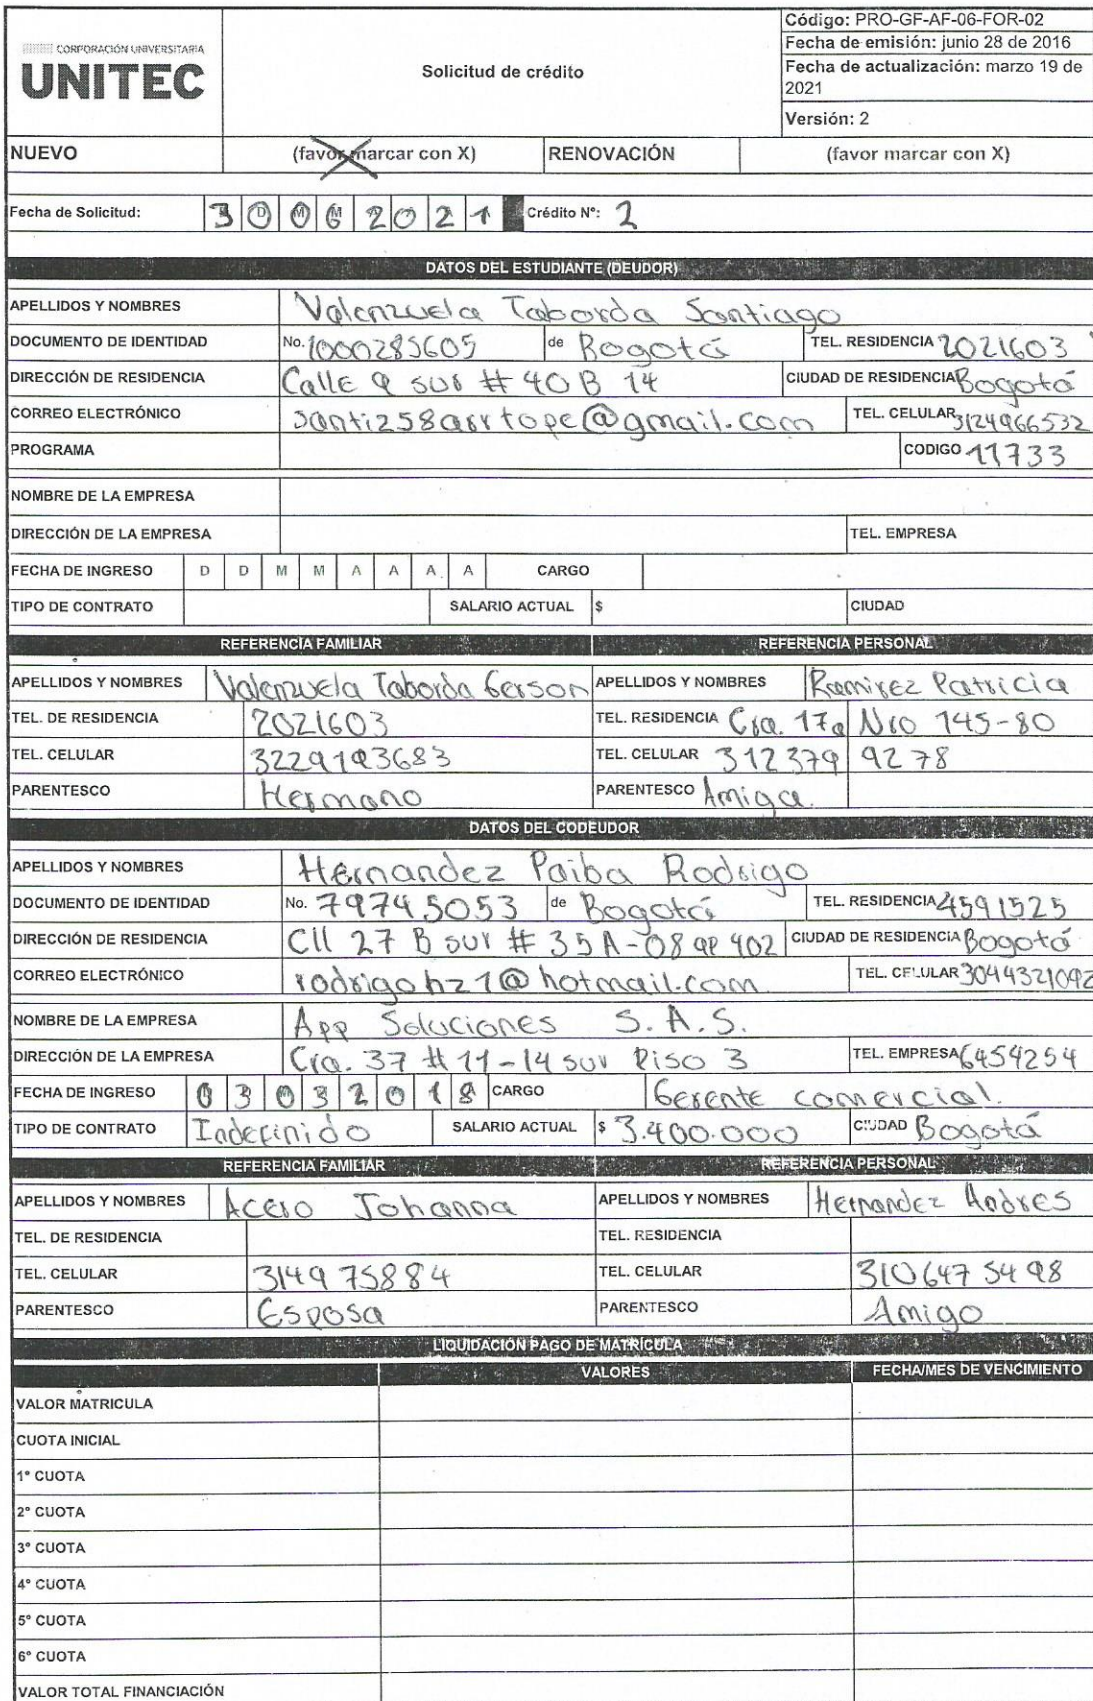 CORPORACIÓN UNIVERSITARIA
UNITEC
Solicitud de crédito
Código: PRO-GF-AF-06-FOR-02
Fecha de emisión: junio 28 de 2016
Fecha de actualización: marzo 19 de
2021
Versión: 2
NUEVO (favor marcar con X) RENOVACIÓN (favor marcar con X)
Fecha de Solicitud: 30 06 2021 Crédito N°: 2
DATOS DEL ESTUDIANTE (DEUDOR)
APELLIDOS Y NOMBRES Valenzuela Taborda Santiago
DOCUMENTO DE IDENTIDAD No. 1000285605 de Bogotá TEL. RESIDENCIA 2021603
DIRECCIÓN DE RESIDENCIA Calle 9 sur # 40 B 14 CIUDAD DE RESIDENCIA Bogotá
CORREO ELECTRÓNICO santi258arrtope@gmail.com TEL. CELULAR 3124966532
PROGRAMA CODIGO 11733
NOMBRE DE LA EMPRESA
DIRECCIÓN DE LA EMPRESA TEL. EMPRESA
FECHA DE INGRESO D D M M A A A A CARGO
TIPO DE CONTRATO SALARIO ACTUAL $ CIUDAD
REFERENCIA FAMILIAR REFERENCIA PERSONAL
APELLIDOS Y NOMBRES Valenzuela Taborda Gerson APELLIDOS Y NOMBRES Ramirez Patricia
TEL. DE RESIDENCIA 2021603 TEL. RESIDENCIA Cra. 17a Nro 145-80
TEL. CELULAR 3229193683 TEL. CELULAR 312379 9278
PARENTESCO Hermano PARENTESCO Amiga.
DATOS DEL CODEUDOR
APELLIDOS Y NOMBRES Hernandez Paiba Rodrigo
DOCUMENTO DE IDENTIDAD No. 79745053 de Bogotá TEL. RESIDENCIA 4591525
DIRECCIÓN DE RESIDENCIA Cll 27 B sur # 35 A-08 ap 402 CIUDAD DE RESIDENCIA Bogotá
CORREO ELECTRÓNICO rodrigohz1@hotmail.com TEL. CELULAR 3044321092
NOMBRE DE LA EMPRESA App Soluciones S.A.S.
DIRECCIÓN DE LA EMPRESA Cra. 37 # 11-14 sur Piso 3 TEL. EMPRESA 6454254
FECHA DE INGRESO 03032018 CARGO Gerente comercial.
TIPO DE CONTRATO Indefinido SALARIO ACTUAL $ 3.400.000 CIUDAD Bogotá
REFERENCIA FAMILIAR REFERENCIA PERSONAL
APELLIDOS Y NOMBRES Acero Johanna APELLIDOS Y NOMBRES Hernandez Andres
TEL. DE RESIDENCIA TEL. RESIDENCIA
TEL. CELULAR 314975884 TEL. CELULAR 3106475498
PARENTESCO Esposa PARENTESCO Amigo
LIQUIDACIÓN PAGO DE MATRÍCULA
VALORES FECHA/MES DE VENCIMIENTO
VALOR MATRICULA
CUOTA INICIAL
1° CUOTA
2° CUOTA
3° CUOTA
4° CUOTA
5° CUOTA
6° CUOTA
VALOR TOTAL FINANCIACIÓN